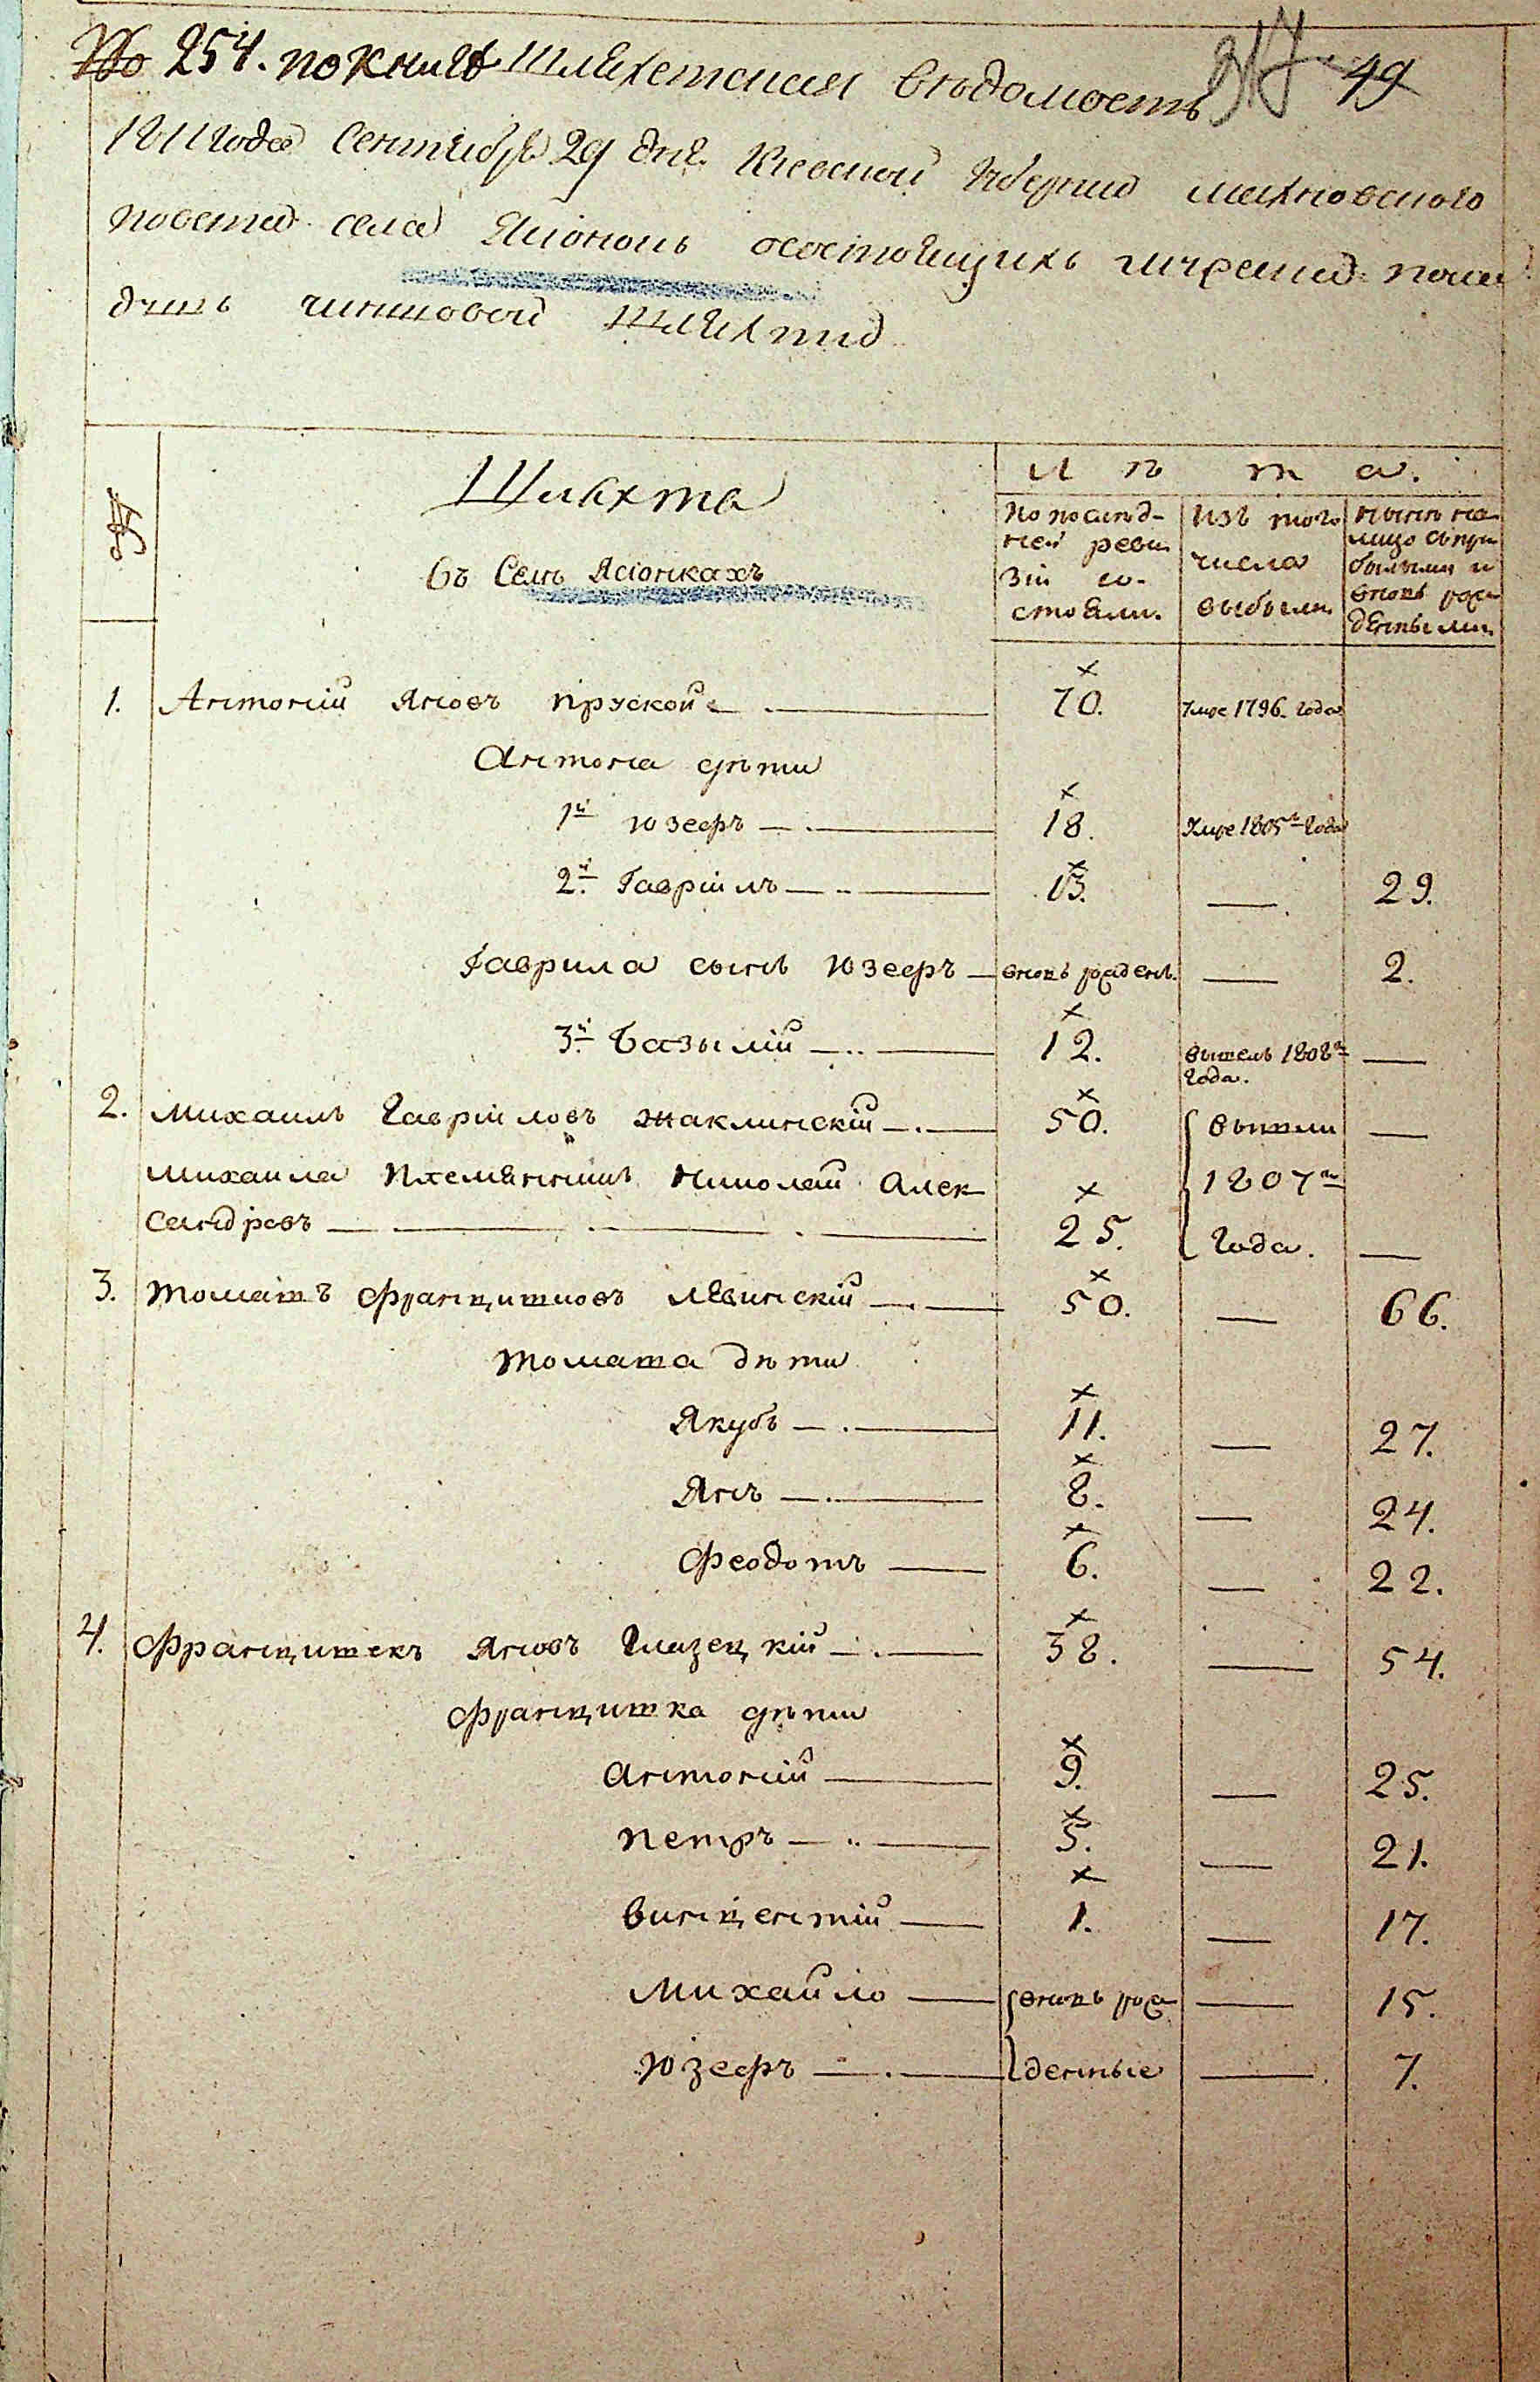 № 254. по книгѣ Шляхетская вѣдомость 49
1811 года Сентября 29 дня. Киевской губернии махновского
повета села Ясіонокъ осостоящихъ
чиншовой шляхты
№
Шляхта
въ Селѣ Ясіонкахъ
Лѣта.
По послѣд-
ней реви
зіи со-
стояли.
Изъ того
числа
выбыли
нынѣ на
лицо съ при
былыми и
вновь рож
денными
1. Антоній Яновъ Пруской 70. Умре 1796. года
Антона дѣти
1й Юзефъ 18. Умре 1805го года
2й Гавріилъ 13. — 29.
Гаврила сынъ Юзефъ вновь рожденъ. — 2.
3й Базылій 12. вышелъ 1808го —
года.
2. Михаилъ Гавріиловъ Жаклинскій 50. вышли —
Михаила Племянникъ Николай Алек 1807го
сандровъ 25. года. —
3. Томашъ Францишковъ Лѣвинскій 50. — 66.
Томаша дѣти
Якубъ 11. — 27.
Янъ 8. — 24.
Феодотъ 6. — 22.
4. Францишекъ Яновъ Глизецкій 38. — 54.
Францишка дѣти
Антоній 9. — 25.
Петръ 5. — 21.
Винцентій 1. — 17.
Михайло вновь рож — 15.
Юзефъ денные — 7.